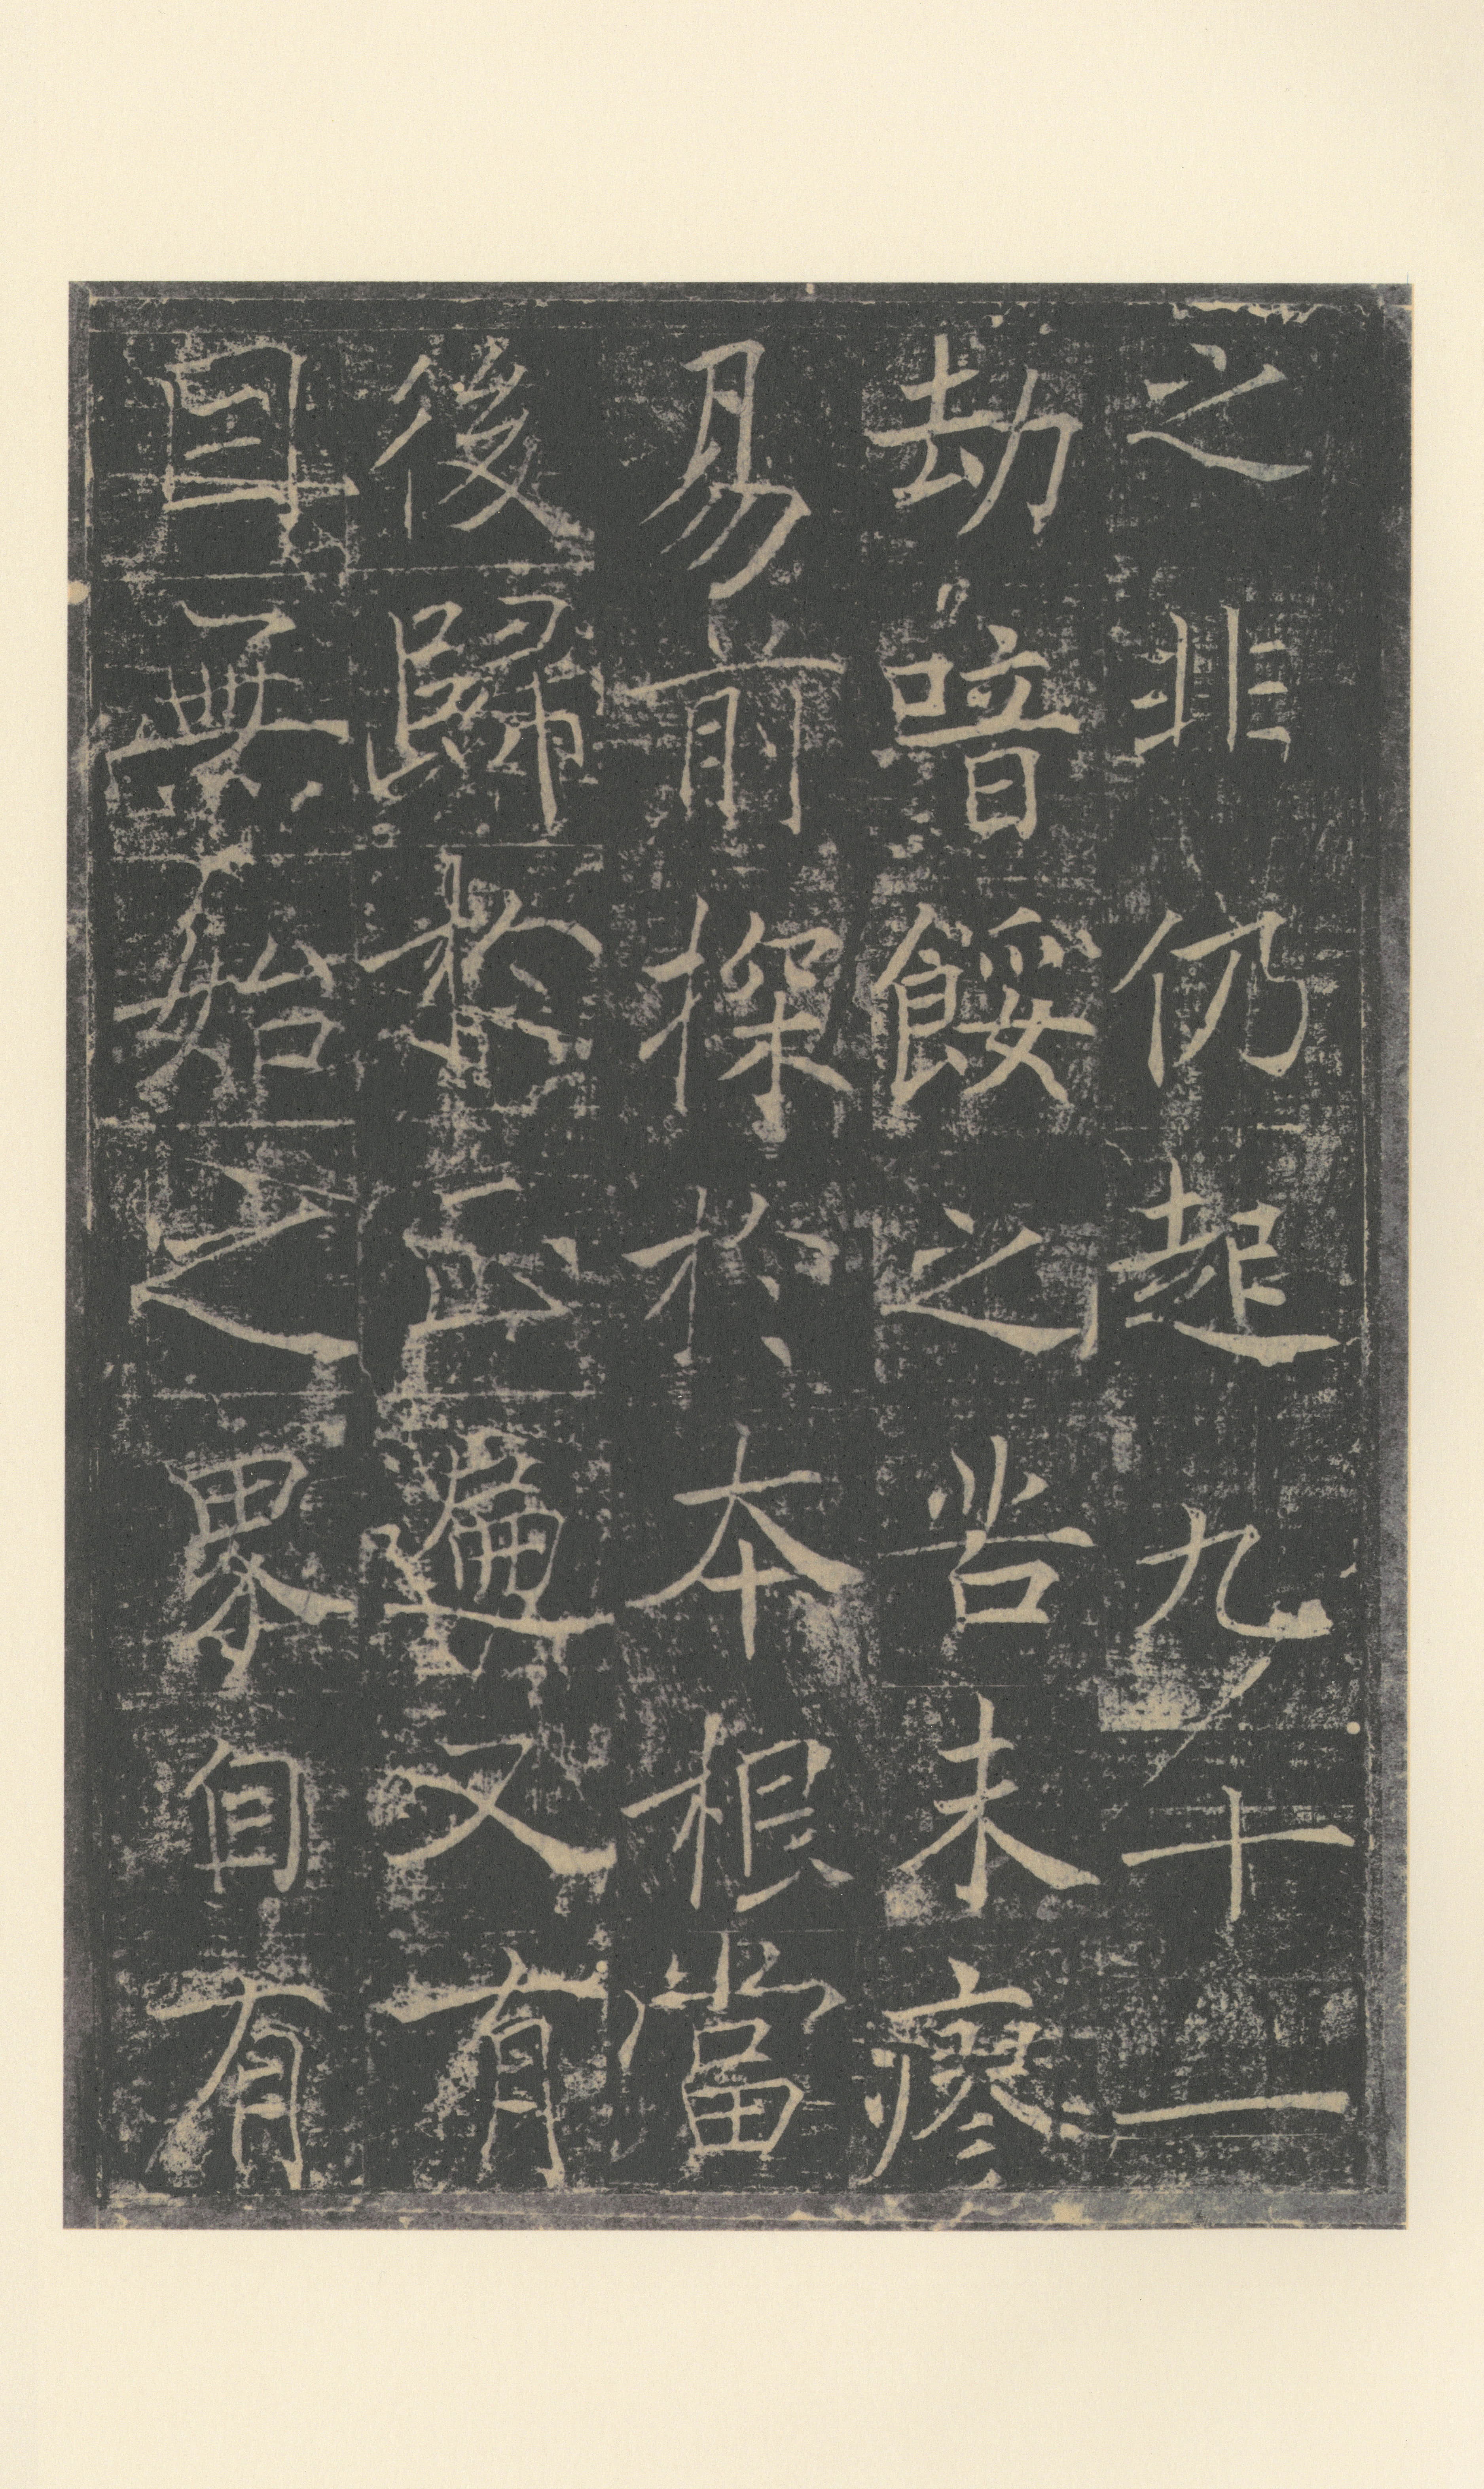 之非仍起九十一
劫喑餒之苦未瘳
易前探於本根當
後歸於正遍又有
因無始之界自有